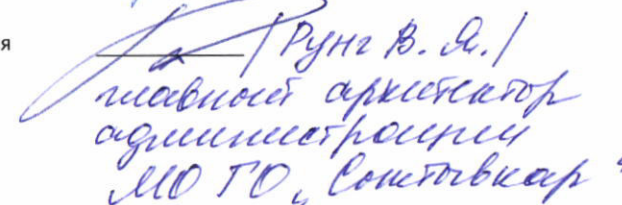 я / Рунг В. Я. /
главный архитектор
администрации
МО ГО „Сыктывкар"